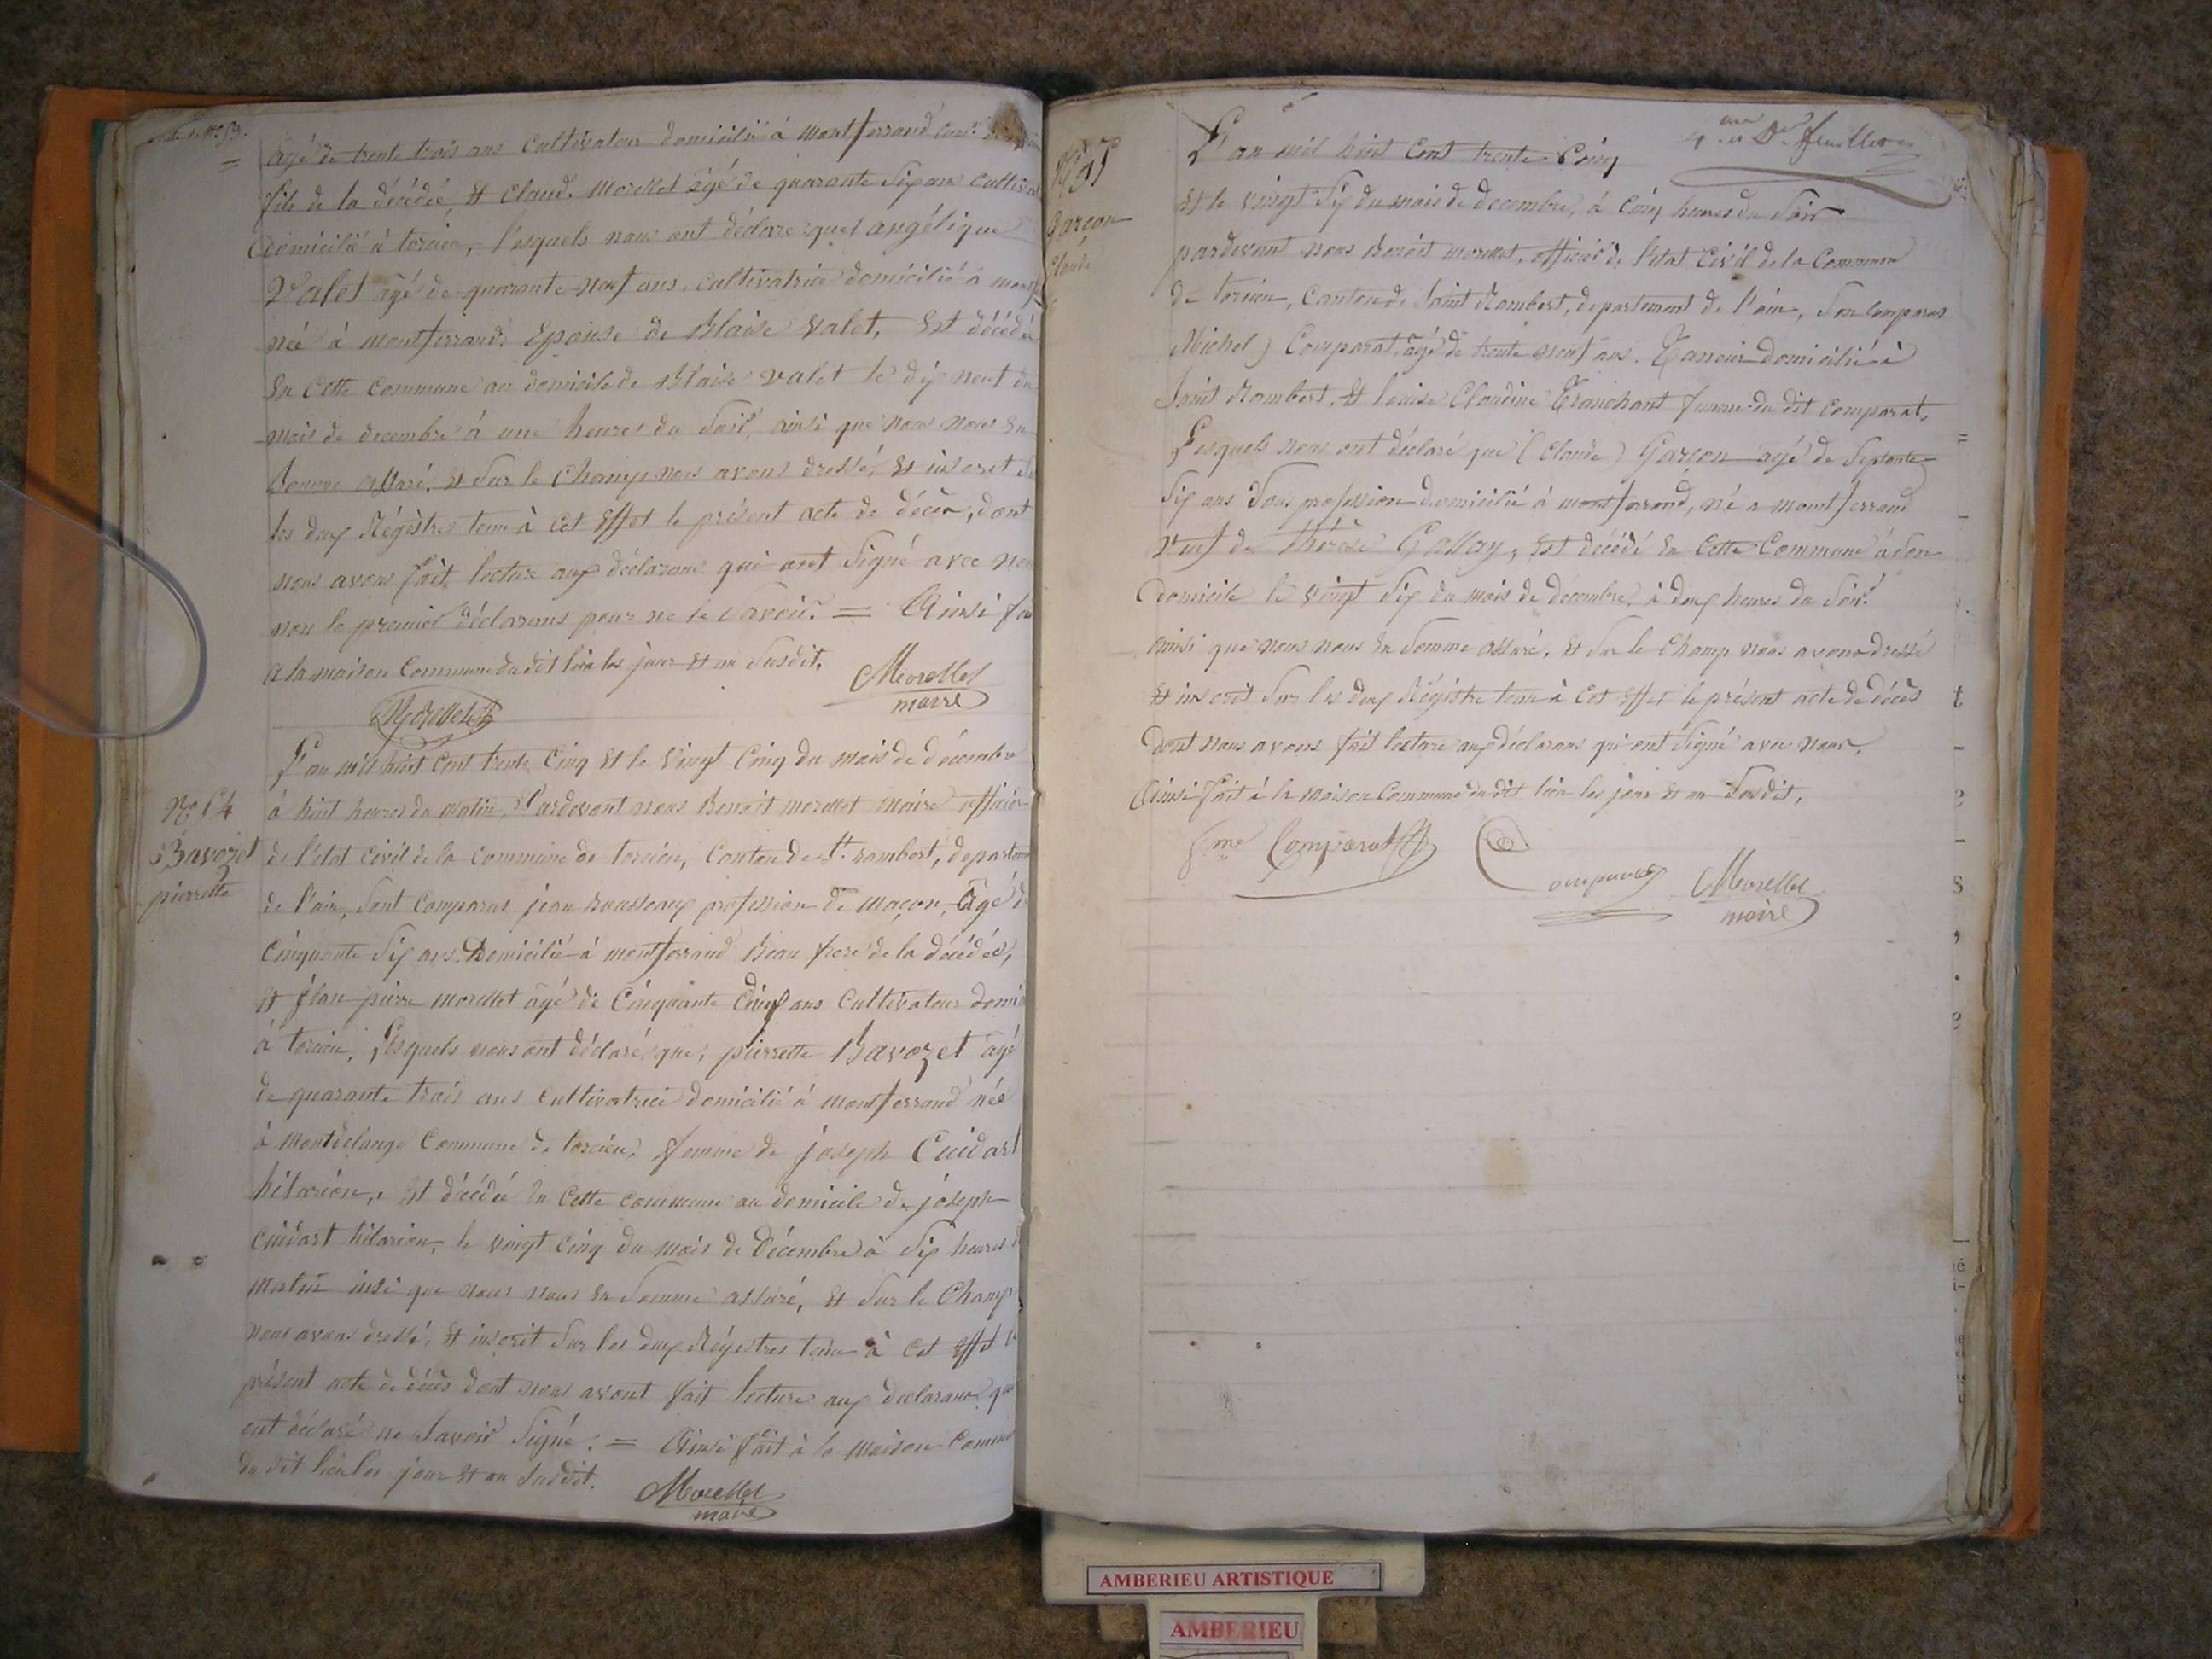 âgé de trente trois ans Cultivateur domicilié à montferrand
fils de la décédé, et Claude Morellet âgé de quarante Six ans Cultiva
domicilié à torcieu, lesquels nous ont déclaré que angélique
Valet âgé de quarante neuf ans, cultivatrice domicilié à mont
née à montferrand, Epouse de Blaise Valet, Est décédée
En Cette commune au domicile de Blaise Valet le dix neuf du
mois de decembre à une heures du Soir, ainsi que nous nous En
Somme assuré, et Sur le Champ nous avons dressé, et inscrit
les deux Régistres tenu à cet Effet le présent acte de décès, dont
nous avons fait lecture aux déclarans qui ont Signé avec
non le premier déclarans pour ne le Savoir. = Ainsi
a la maison Commune du dit lieu les jour et an Susdit.
Morellet
maire
Morellet
L'an mil huit Cent trente Cinq et le Vingt Cinq du mois de décembre
N° 54
Bavozet
pierrette
à huit heures du matin, Pardevant nous Benoit morellet maire officier
de l'état civil de la commune de torcieu, Canton de St. rambert, departem
de l'ain, Sont Comparus jean Rousseaux profession de maçon, âgé d
Cinquante Six ans Domicilié à montferrand Beau frere de la décédée,
et jean pierre morellet âgé de Cinquante Cinq ans Cultivateur domi
à torcieu, Lesquels nous ont déclaré que, pierrette Bavozet âgé
de quarante trois ans Cultivatrice domicilié à montferrand née
à Montdelange Commune de torcieu, femme de joseph Cuidart
hilarion, Est décédée En Cette commune au domicile de joseph
Cuidart hilarion, le vingt cinq du mois de Décembre à Six heures
matin insi que nous nous En Somme assuré, et Sur le Champ
nous avons dressé, et inscrit Sur les deux Régistres tenu à cet Effet
présent acte de décès dont nous avont fait lecture aux declarans qu
ont déclaré ne Savoir Signé. = Ainsi fait à la maison Commu
du dit lieu les jour et an Susdit.
Morellet
maire
4me et Der feuillet
N° 55
Garçon
Claude
L'an mil huit Cent trente Cinq
et le vingt Six du mois de decembre, à Cinq heures du Soir
pardevant nous Benoit morellet, officier de l'état Civil de la Commune
de torcieu, Canton de Saint Rambert, departement de l'ain, Son Comparus
Michel) Comparat, âgé de trente neuf ans. Taneur domicilié à
Saint Rambert, et louise Claudine Tranchant femme du dit Comparat,
Lesquels nous ont déclaré que (Claude) Garçon agé de Septante
Six ans Sans profession domicilié à montferrand, né a montferrand
veuf de thérèse Gallay, Est décédé En Cette Commune à Son
domicile le vingt Six du mois de décembre, à deux heures du Soir
ainsi que nous nous En Somme assuré, et Sur le Champ nous avons dressé
et inscrit Sur les deux Régistre tenu à Cet Effet le présent acte de décès
dont nous avons fait lecture aux déclarans qui ont Signé avec nous,
Ainsi fait à la Maison Commune du dit lieu les jour et an Susdit,
fme Comparat
Comparat
Morellet
maire
AMBERIEU ARTISTIQUE
AMBERIEU